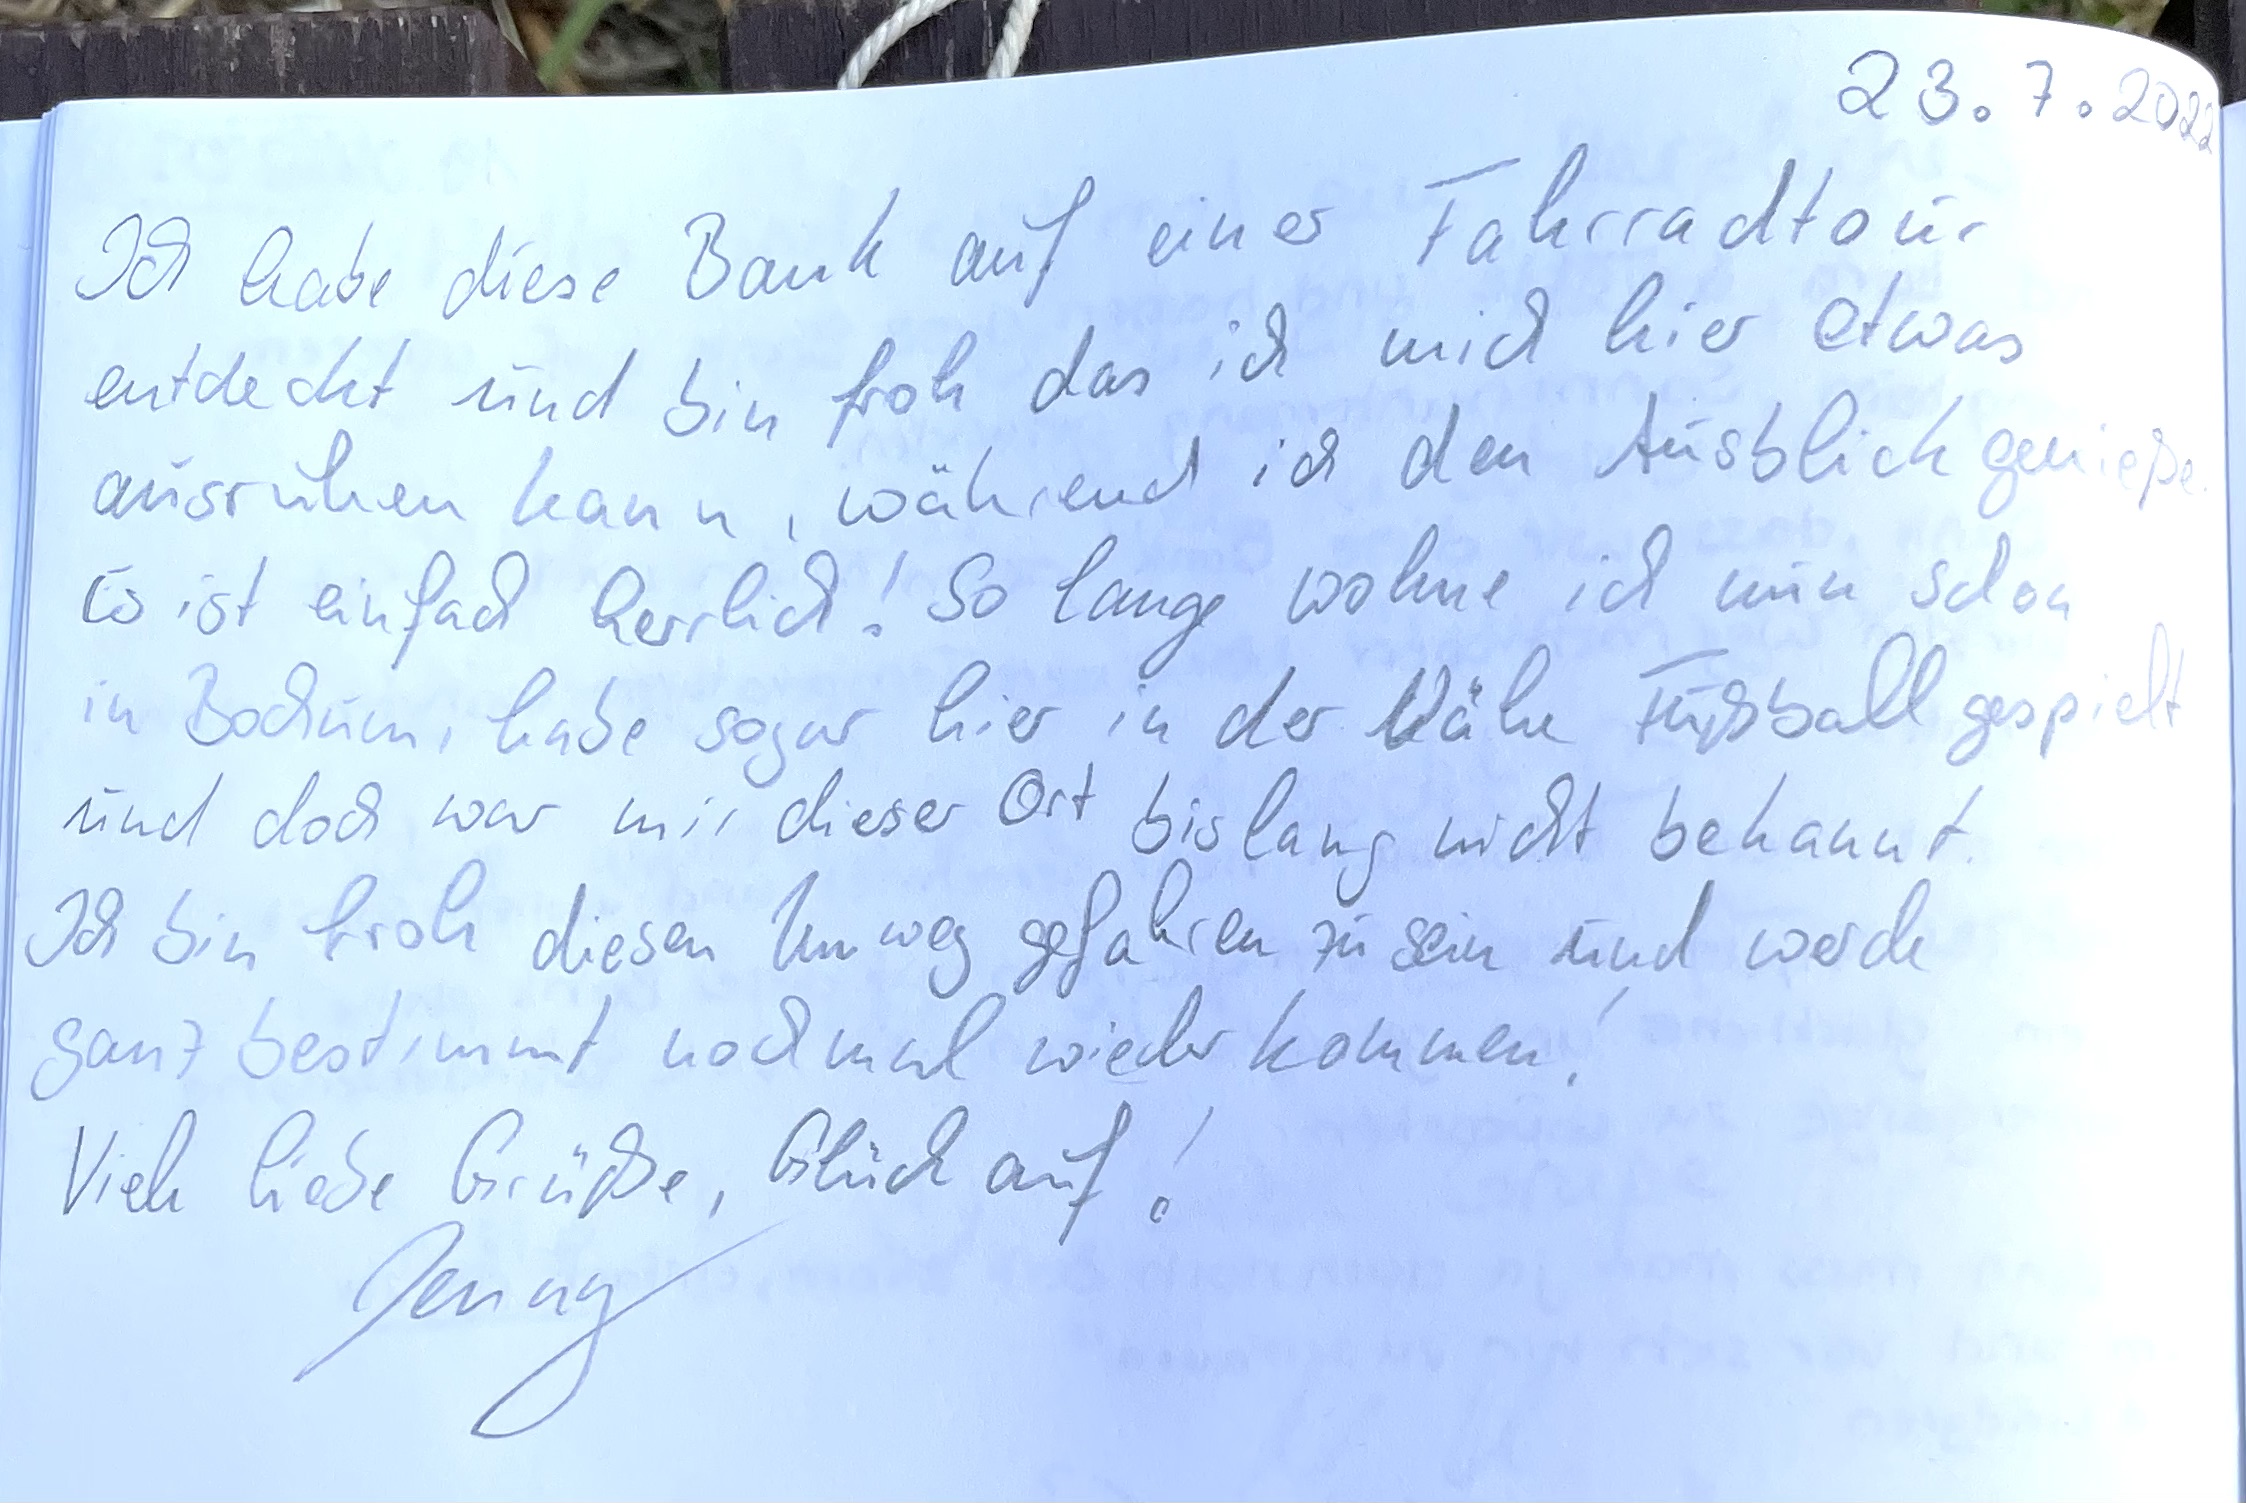 23.7.2022
Ich habe diese Bank auf einer Fahrradtour
entdeckt und bin froh das ich mich hier etwas
ausruhen kann, während ich den Ausblick genieße.
Es ist einfach herrlich! So lange wohne ich nun schon
in Bochum, habe sogar hier in der Nähe Fußball gespielt
und doch war mir dieser Ort bislang nicht bekannt.
Ich bin froh diesen Umweg gefahren zu sein und werde
ganz bestimmt nochmal wiederkommen!
Viele liebe Grüße, Glück auf!
Jenny